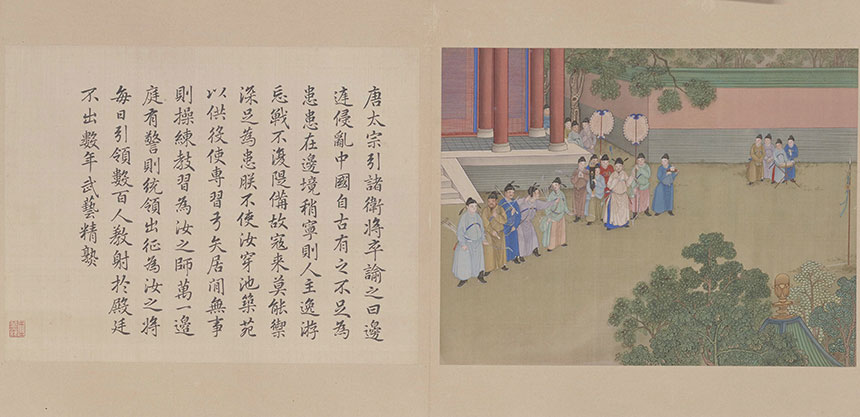 唐太宗引諸衛將卒諭之曰邊
連侵亂中國自古有之不足為
患患在邊境稍寧則人主逸游
忘戰不復隄備故寇來莫能禦
深足為患朕不使汝穿池築苑
以供役使專習弓矢居閒無事
則操練教習為汝之師萬一邊
庭有警則統領出征為汝之將
每日引領數百人教射於殿廷
不出數年武藝精熟